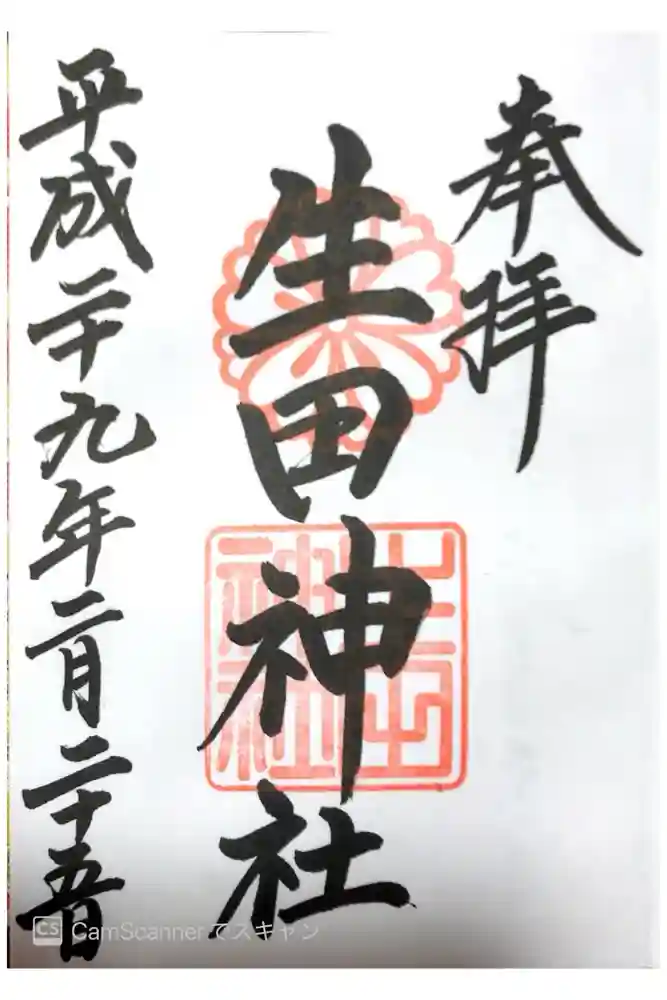 奉拝
生田神社
平成二十九年二月二十五日
生田神社
CS CamScanner でスキャン